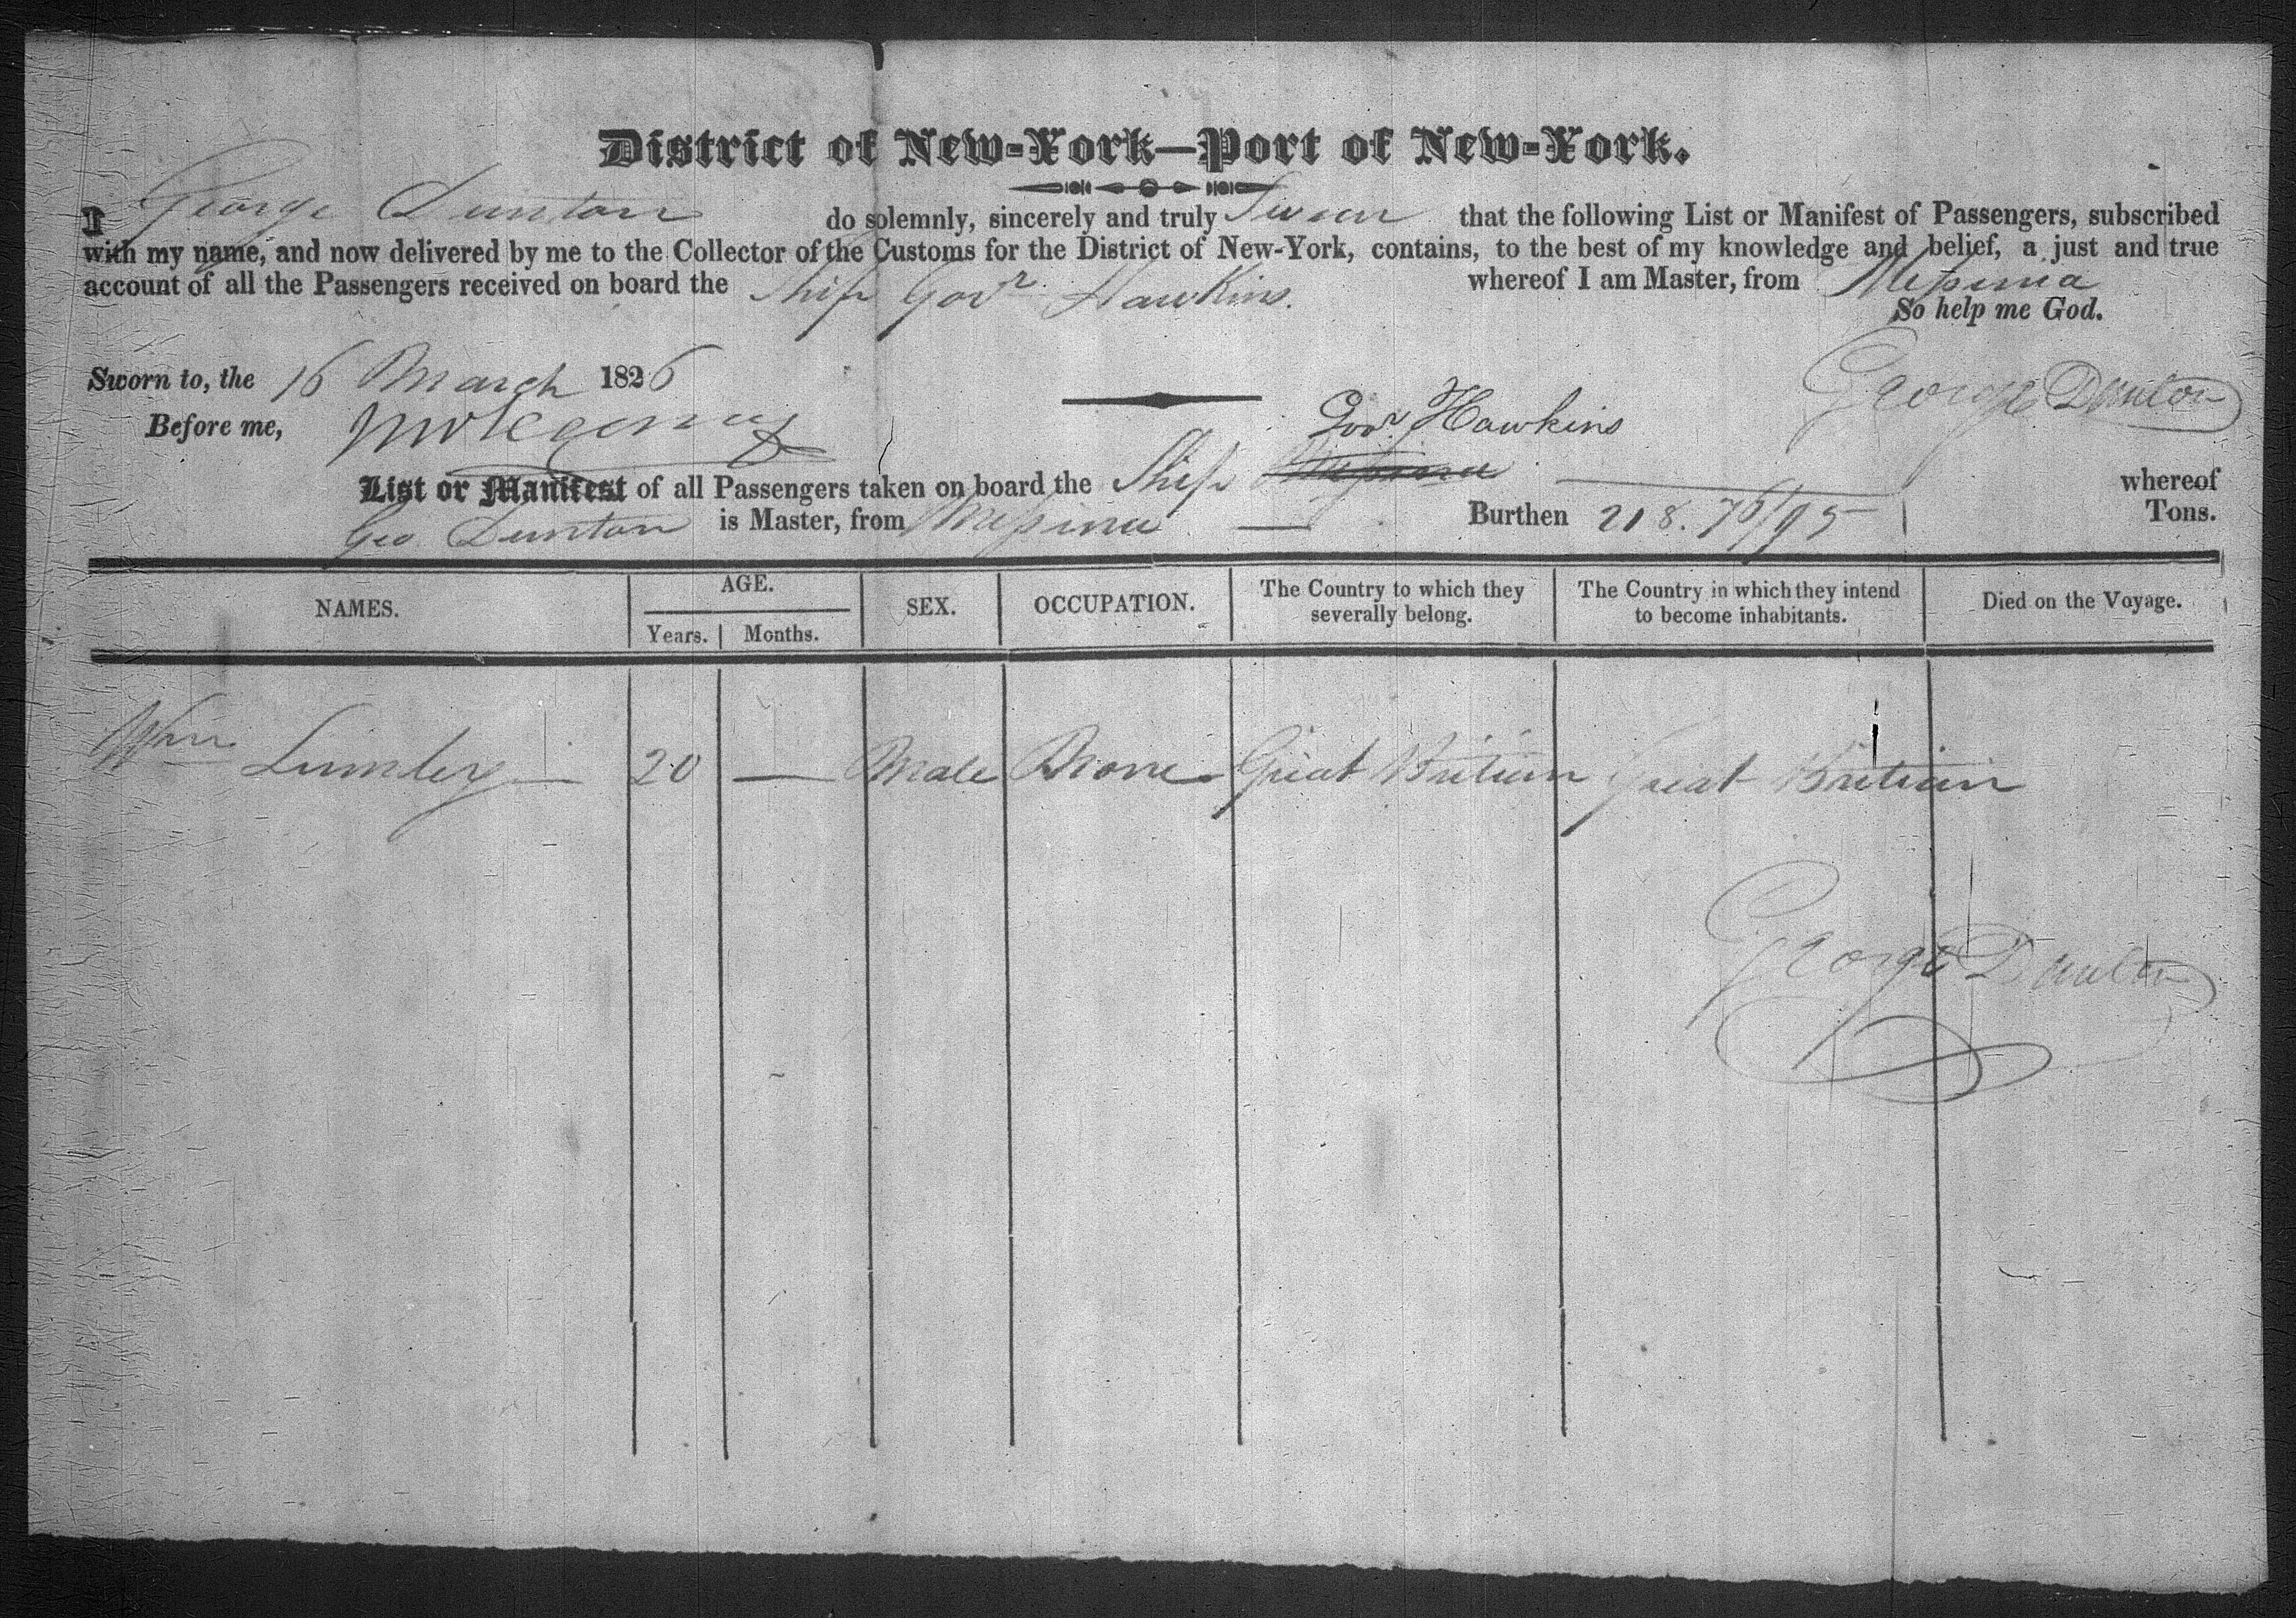 District of New-York—Port of New-York.
I George Dunton do solemnly, sincerely and truly Swear that the following List or Manifest of Passengers, subscribed
with my name, and now delivered by me to the Collector of the Customs for the District of New-York, contains, to the best of my knowledge and belief, a just and true
account of all the Passengers received on board the Ship Govr Hawkins. whereof I am Master, from Messina
So help me God.
Sworn to, the 16 March 1826
George Dunton
Before me,
Govr Hawkins
List or Manifest of all Passengers taken on board the Ship Messina whereof
Geo Dunton is Master, from Messina — Burthen 218. 76/95 Tons.
NAMES. AGE. SEX. OCCUPATION. The Country to which they severally belong. The Country in which they intend to become inhabitants. Died on the Voyage.
Years. Months.
Wm Lumley — 20 — Male None Great Britain Great Britain
George Dunton